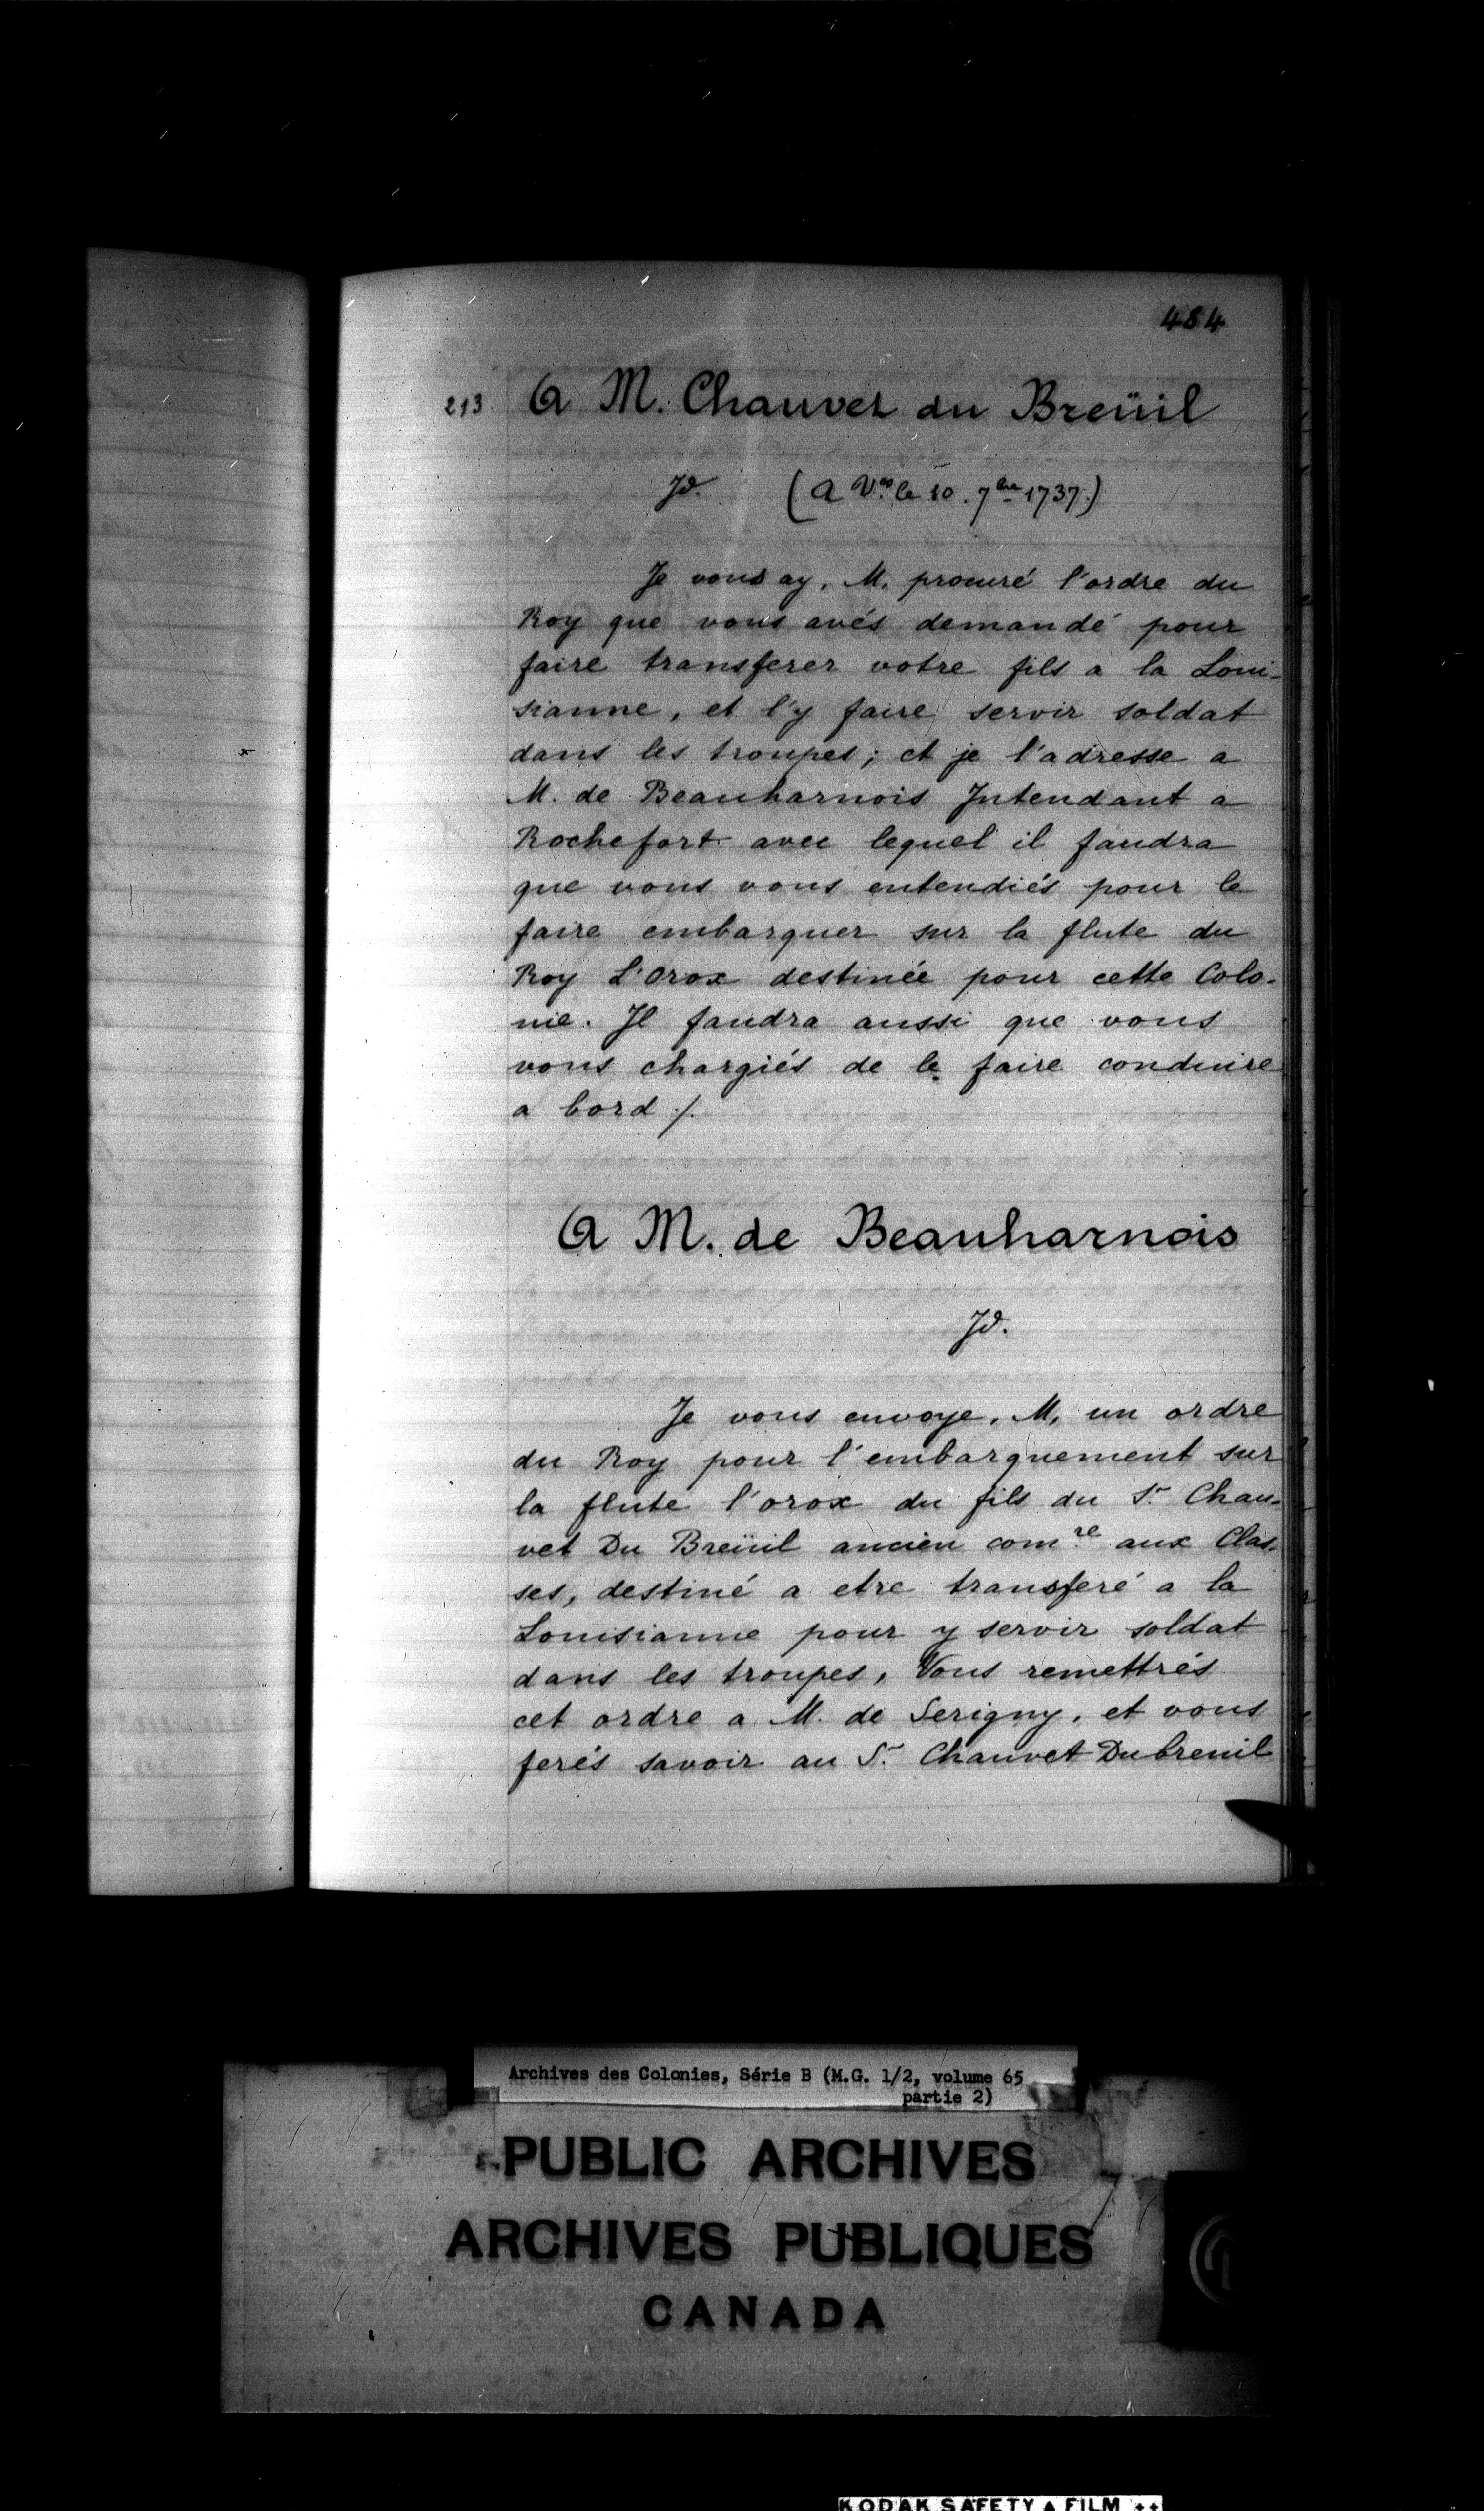 484
213. A M. Chauvet du Breüil
Jd. (A V.^es le 10. 7^bre 1737.)
Je vous ay, M. procuré l'ordre du
Roy que vous avés demandé pour
faire transferer votre fils a la Loui-
sianne, et l'y faire servir soldat
dans les troupes; et je l'adresse a
M. de Beauharnois Jntendant a
Rochefort avec lequel il faudra
que vous vous entendiés pour le
faire embarquer sur la flute du
Roy L'Orox destinée pour cette Colo-
nie. Jl faudra aussi que vous
vous chargiés de le faire conduire
a bord ./.
A M. de Beauharnois
Jd.
Je vous envoye, M, un ordre
du Roy pour l'embarquement sur
la flute l'orox du fils du S.r Chau-
vet Du Breüil ancien com.re aux Clas-
ses, destiné a etre transferé a la
Louisianne pour y servir soldat
dans les troupes, Vous remettrés
cet ordre a M. de Serigny, et vous
ferés savoir au S.r Chauvet Dubreuil
Archives des Colonies, Série B (M.G. 1/2, volume 65
partie 2)
PUBLIC ARCHIVES
ARCHIVES PUBLIQUES
CANADA
KODAK SAFETY ▲ FILM ++